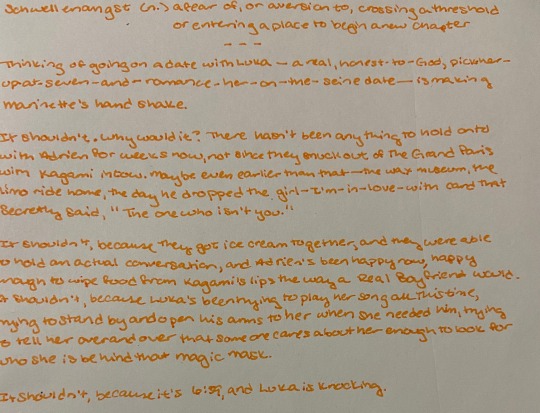 Schwellenangst (n.) a fear of, or aversion to, crossing a threshold
or entering a place to begin a new chapter
---
Thinking of going on a date with Luka — a real, honest-to-God, pick-her-
up-at-seven-and-romance-her-on-the-seine date — is making
marinette's hand shake.
It shouldn't. Why would it? There hasn't been anything to hold onto
with Adrien for weeks now, not since they snuck out of The Grand Paris
with Kagami in tow. maybe even earlier than that — the wax museum, the
limo ride home, the day he dropped the girl-I'm-in-love-with card that
secretly said, "The one who isn't you."
It shouldn't, because they got ice cream together, and they were able
to hold an actual conversation, and Adrien's been happy now, happy
enough to wipe food from Kagami's lips the way a Real Boyfriend would.
It shouldn't, because Luka's been trying to play her song all this time,
trying to stand by and open his arms to her when she needed him, trying
to tell her over and over that someone cares about her enough to look for
who she is behind that magic mask.
It shouldn't, because it's 6:59, and Luka is knocking.